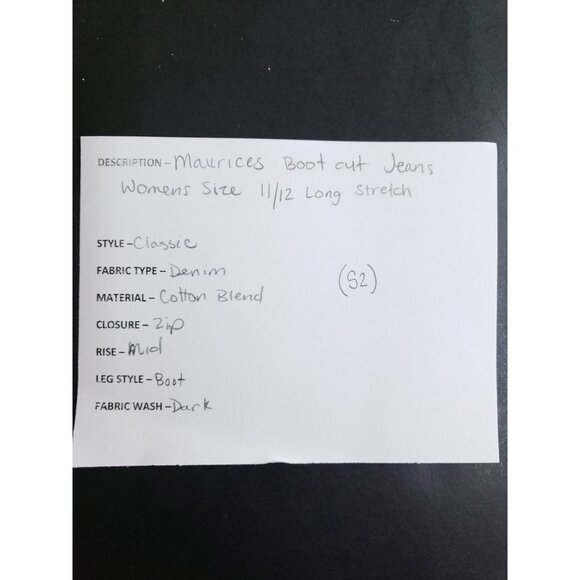 DESCRIPTION - Maurices Boot cut Jeans
Womens Size 11/12 Long Stretch
STYLE - Classic
FABRIC TYPE - Denim
(S2)
MATERIAL - Cotton Blend
CLOSURE - Zip
RISE - Mid
LEG STYLE - Boot
FABRIC WASH - Dark